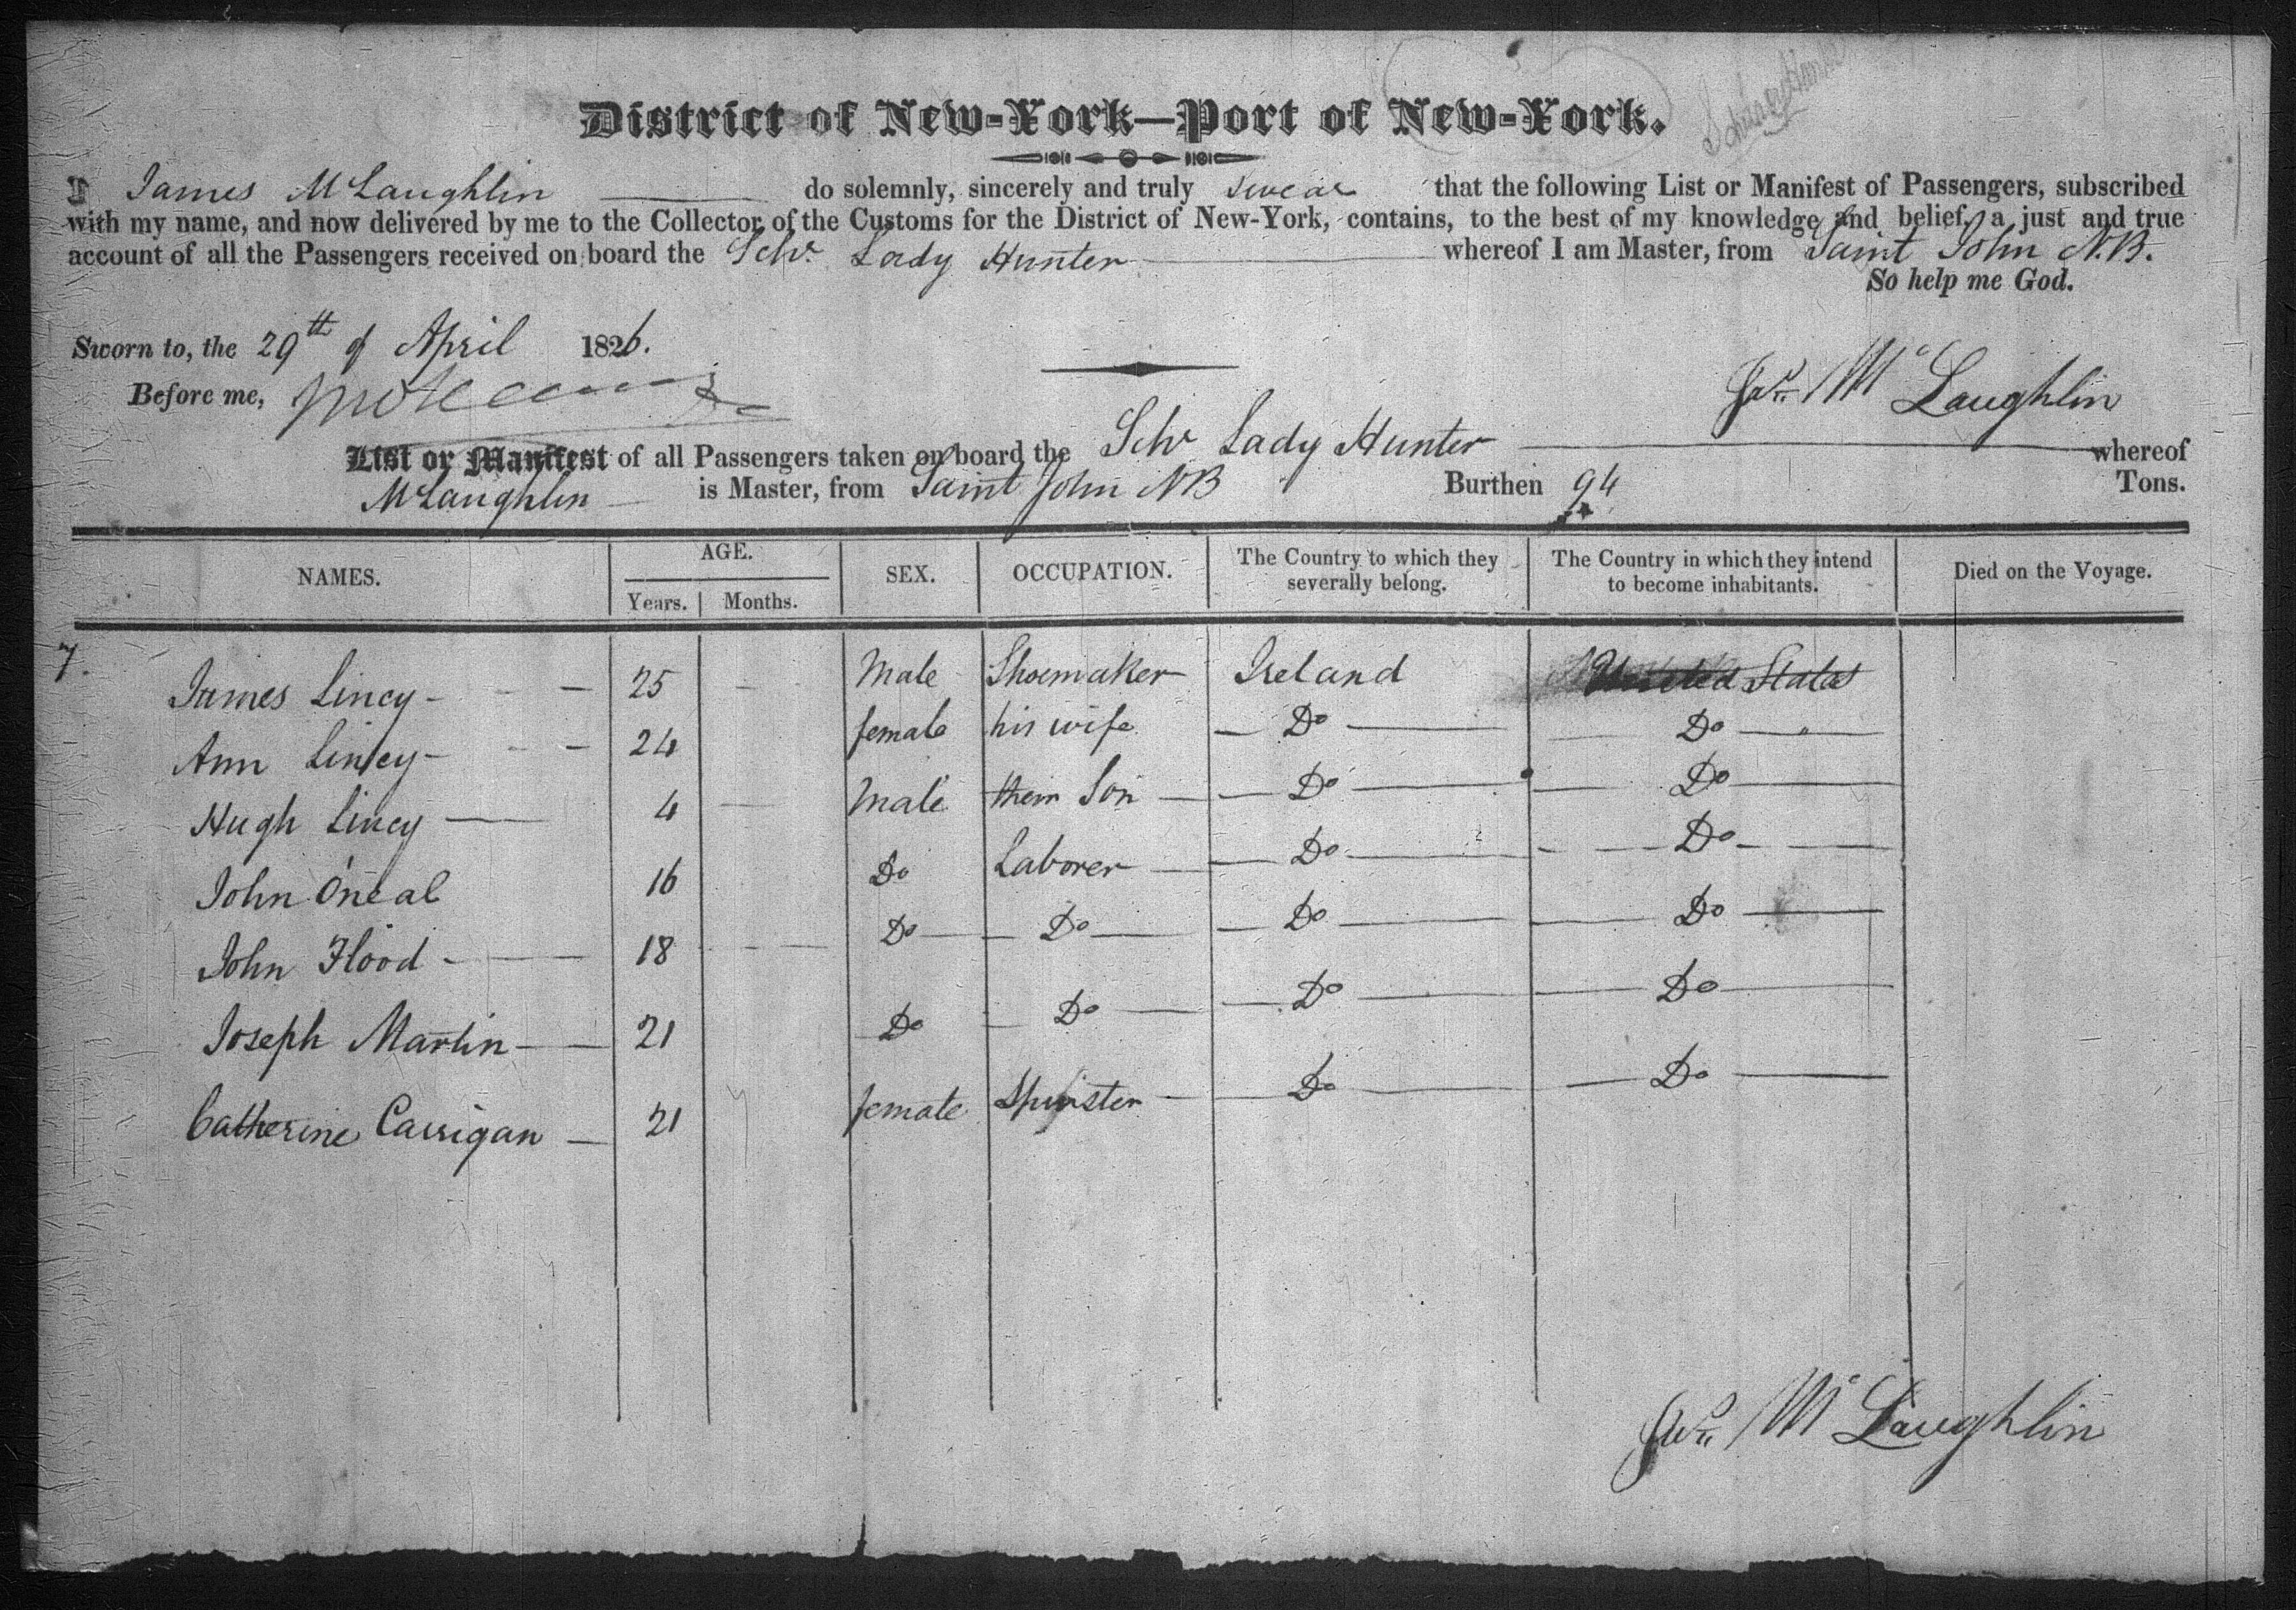 District of New-York—Port of New-York.
I James McLaughlin do solemnly, sincerely and truly swear that the following List or Manifest of Passengers, subscribed
with my name, and now delivered by me to the Collector of the Customs for the District of New-York, contains, to the best of my knowledge and belief, a just and true
account of all the Passengers received on board the Schr Lady Hunter whereof I am Master, from Saint John N.B.
So help me God.
Sworn to, the 29th of April 1826.
Before me,
Jas. McLaughlin
List or Manifest of all Passengers taken on board the Schr Lady Hunter whereof
McLaughlin is Master, from Saint John NB Burthen 94 Tons.
NAMES. AGE. SEX. OCCUPATION. The Country to which they severally belong. The Country in which they intend to become inhabitants. Died on the Voyage.
Years. Months.
7. James Lincy 25 Male Shoemaker Ireland United States
Ann Lincy 24 female his wife Do Do
Hugh Lincy 4 Male their Son Do Do
John O'neal 16 Do Laborer Do Do
John Flood 18 Do Do Do Do
Joseph Martin 21 Do Do Do Do
Catherine Carrigan 21 female Spinster Do Do
Jas. McLaughlin